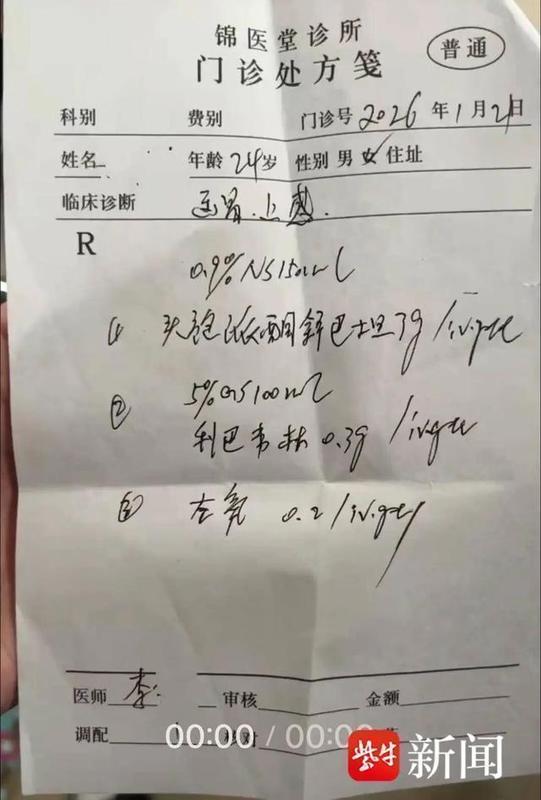 锦医堂诊所
普通
门诊处方笺
科别 费别 门诊号 2026年1月21日
姓名 年龄 24岁 性别 男 女 住址
临床诊断 上感.
R
0.9%NS150ml
① 头孢哌酮舒巴坦 3g /iv.gtt
② 5%GS100ml
利巴韦林 0.3g /iv.gtt
③ 左氧 0.2 /iv.gtt
医师 李 审核 金额
调配 核对
00:00 / 00:00
紫牛新闻